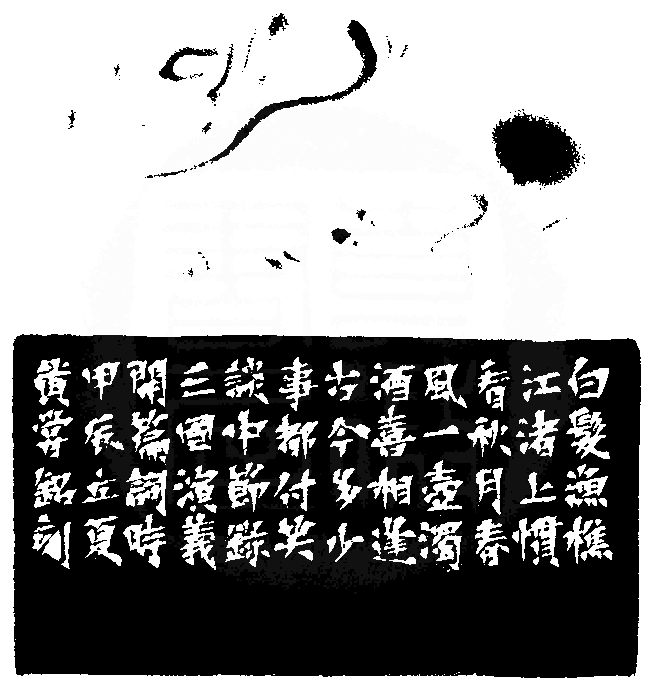 白髮漁樵
江渚上慣
看秋月春
風一壺濁
酒喜相逢
古今多少
事都付笑
談中節錄
三國演義
開篇詞時
甲辰立夏
黃銘刻